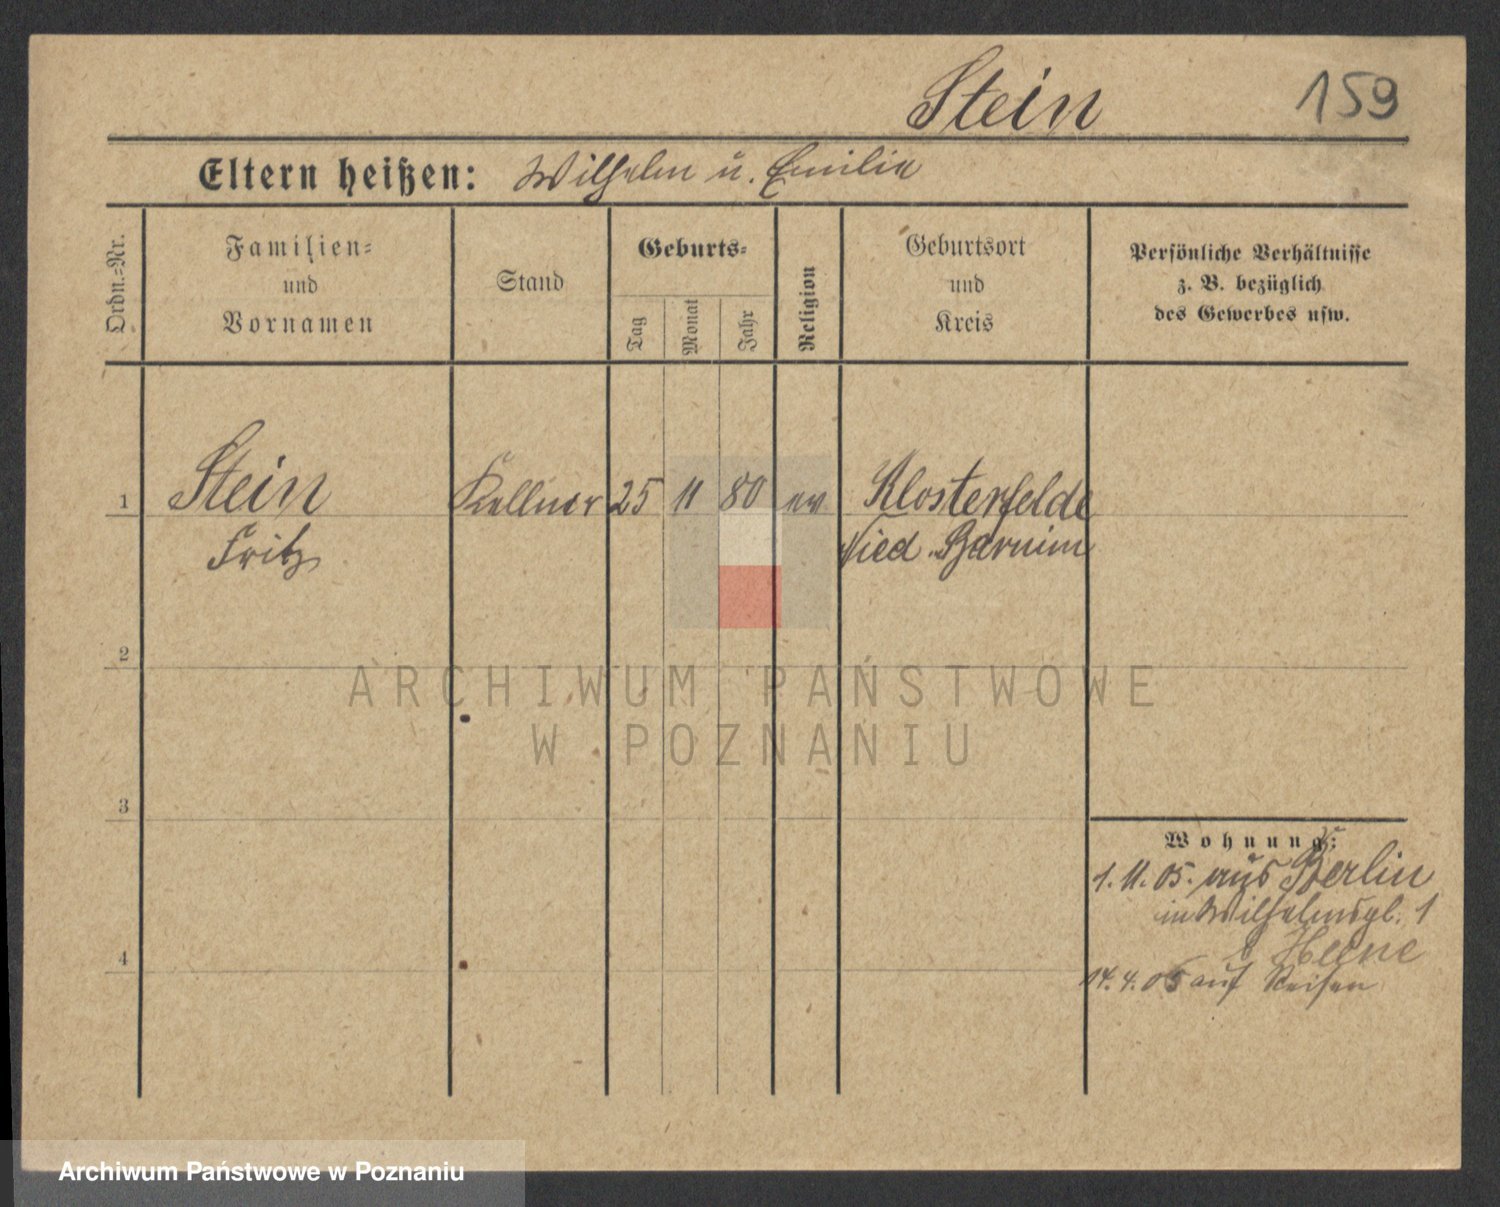 Stein 159
Eltern heißen: Wilhelm u. Emilie
Ordn.-Nr.
Familien-
und
Vornamen
Stand
Geburts-
Tag
Monat
Jahr
Religion
Geburtsort
und
Kreis
Persönliche Verhältnisse
z. B. bezüglich
des Gewerbes usw.
1 Stein Kellner 25 11 80 ev Klosterfelde
Fritz Nied. Barnim
2
3
4
Wohnung:
1. 11. 05. aus Berlin
in Wilhelmspl. 1
b Heene
14. 4. 06 auf Reisen
ARCHIWUM PAŃSTWOWE
W POZNANIU
Archiwum Państwowe w Poznaniu